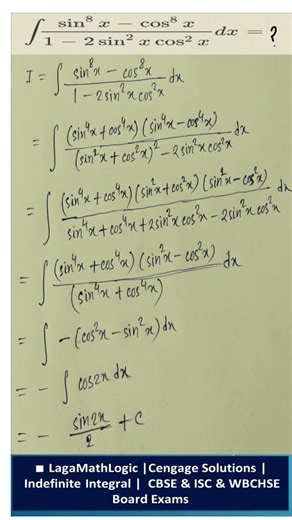 ∫ (sin⁸ x − cos⁸ x)/(1 − 2 sin² x cos² x) dx = ?
I = ∫ (sin⁸x − cos⁸x)/(1 − 2sin²x cos²x) dx
= ∫ (sin⁴x + cos⁴x)(sin⁴x − cos⁴x)/((sin²x + cos²x)² − 2sin²x cos²x) dx
= ∫ (sin⁴x + cos⁴x)(sin²x + cos²x)(sin²x − cos²x)/(sin⁴x + cos⁴x + 2sin²x cos²x − 2sin²x cos²x) dx
= ∫ (sin⁴x + cos⁴x)(sin²x − cos²x)/(sin⁴x + cos⁴x) dx
= ∫ −(cos²x − sin²x) dx
= − ∫ cos2x dx
= − sin2x/2 + C
■ LagaMathLogic |Cengage Solutions |
Indefinite Integral | CBSE & ISC & WBCHSE
Board Exams